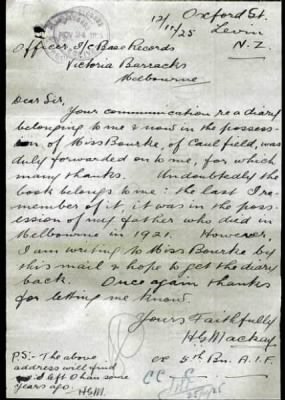 Oxford St.
12/11/25 Levin
N.Z.
NOV 24
Officer I/c Base Records
Victoria Barracks
Melbourne
Dear Sir,
Your communication re a diary
belonging to me & now in the posses-
ion, of Miss Bourke, of Caulfield, was
duly forwarded on to me, for which
many thanks. Undoubtedly the
book belongs to me: the last I re-
member of it, it was in the poss-
ession of my father who died in
Melbourne in 1921. However,
I am writing to Miss Bourke by
this mail & hope to get the diary
back. Once again thanks
for letting me know.
Yours Faithfully
H G Mackay
ex 5th Bn. A.I.F.
P.S:- The above
address will find
I left O'han some
years ago. HGM.
CC